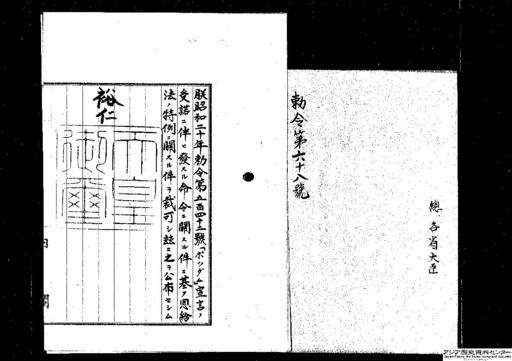 勅令第六十八號
總 各省大臣
朕昭和二十年勅令第五百四十二號「ポツダム」宣言ノ
受諾ニ伴ヒ發スル命令ニ關スル件ニ基ク恩給
法ノ特例ニ關スル件ヲ裁可シ茲ニ之ヲ公布セシム
裕仁
天皇
御璽
内 閣
アジア歴史資料センター